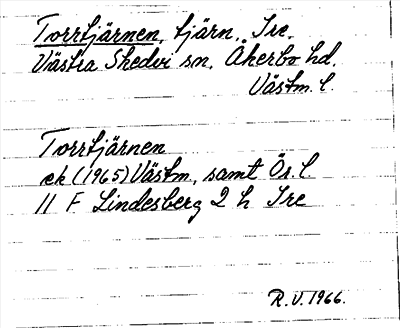 Torrtjärnen, tjärn, Ire.
Västra Skedvi sn, Åkerbo hd.
Västm. l.
Torrtjärnen
ek (1965) Västm, samt Ör. l.
11 F Lindesberg 2 h Ire
R.V. 1966.